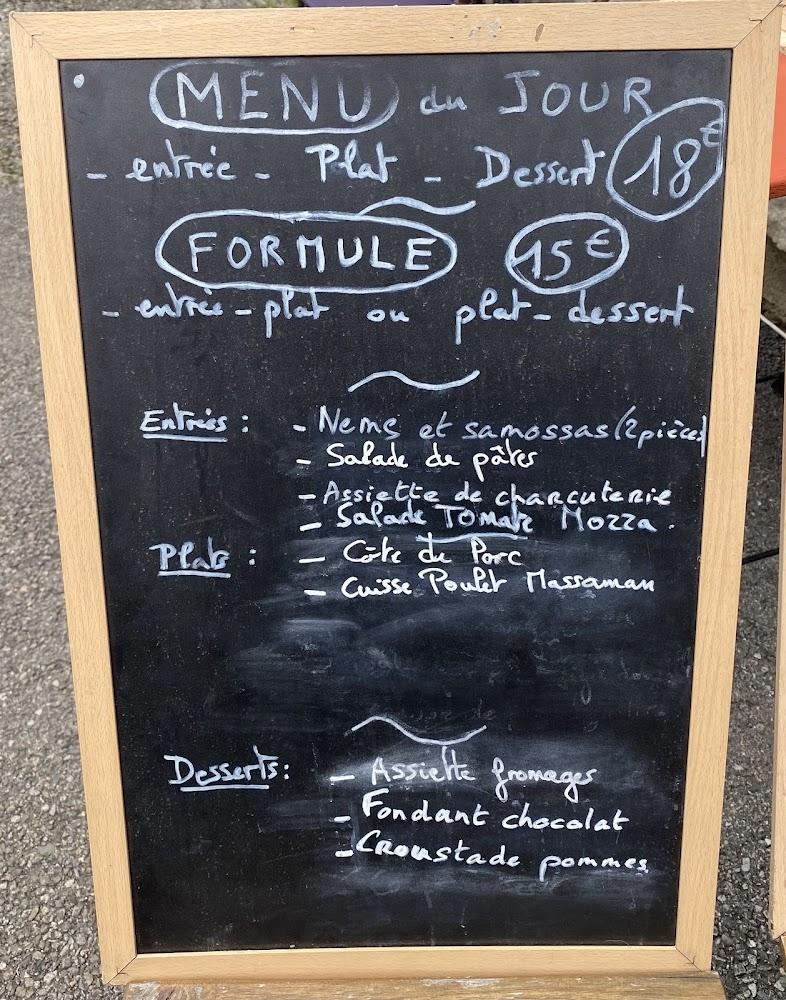 MENU du JOUR
- entrée - Plat - Dessert 18€
FORMULE 15€
- entrée - plat ou plat - dessert
Entrées : - Nems et samossas (2 pièces)
- Salade de pâtes
- Assiette de charcuterie
- Salade Tomate Mozza.
Plats : - Côte de Porc
- Cuisse Poulet Massaman
Desserts : - Assiette fromages
- Fondant chocolat
- Croustade pommes